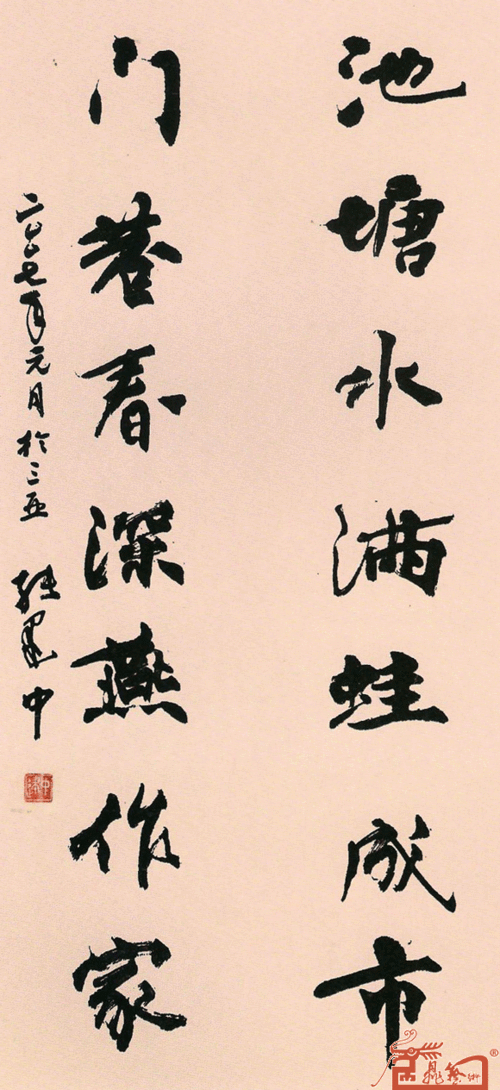 池塘水满蛙成市
门巷春深燕作家
二〇〇七年元月於三亚
中